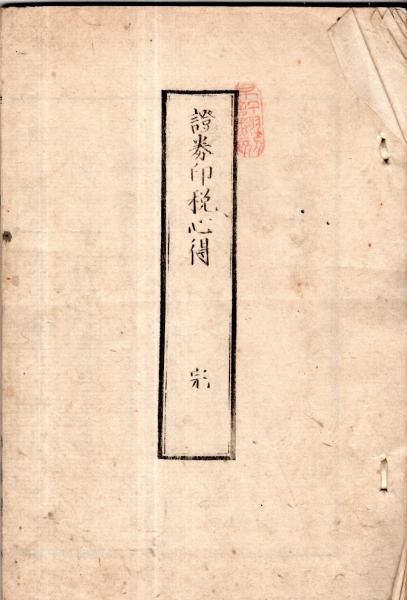 證券印税心得
完